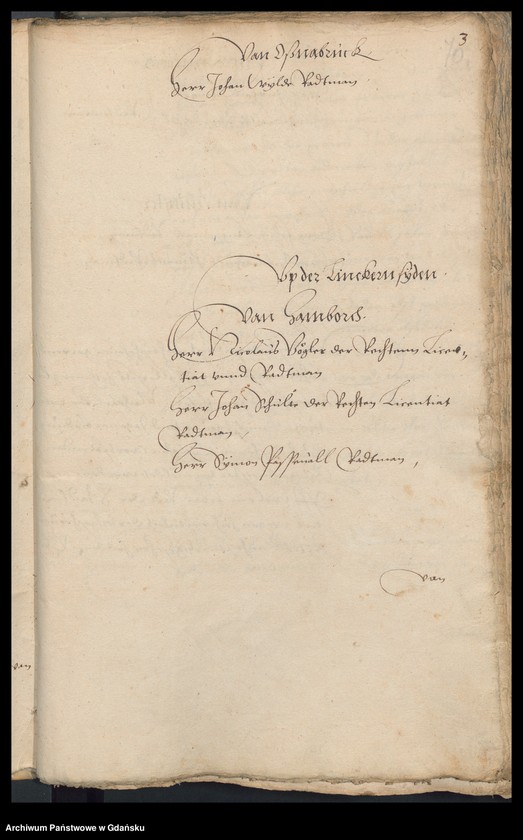 3
Van Oßnabrück
Herr Johan Wylde Radtman
Vp der Linckern syden.
Van Hamborch.
Herr Nicolaus Vögler der Rechtenn Licen-
tiat vnnd Radtman
Herr Johan Schulte der Rechten Licentiat
Radtman
Herr Symon Radtman,
van
Archiwum Państwowe w Gdańsku